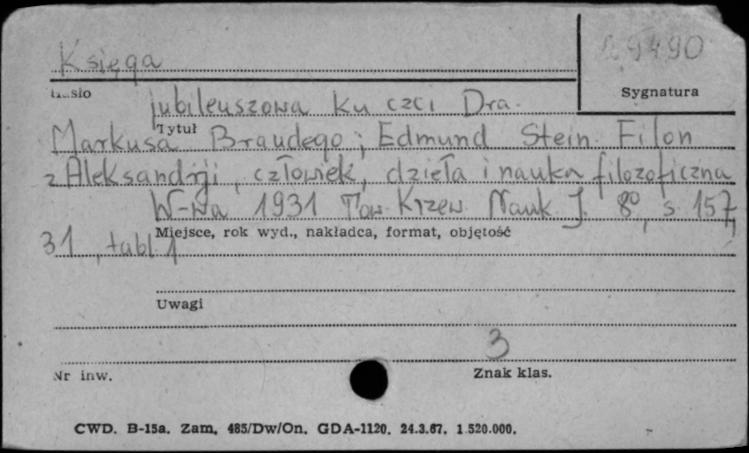 Księga
9490
Hasło
Sygnatura
jubileuszowa ku czci Dra.
Tytuł
Markusa Braudego; Edmund Stein. Filon
z Aleksandrji, człowiek, dzieła i nauka filozoficzna
W-wa 1931 Tow. Krzew. Nauk J. 8º, s. 157,
Miejsce, rok wyd., nakładca, format, objętość
31, tabl. 1
Uwagi
3
Nr inw.
Znak klas.
CWD. B-15a. Zam. 485/Dw/On. GDA-1120. 24.3.67. 1.520.000.